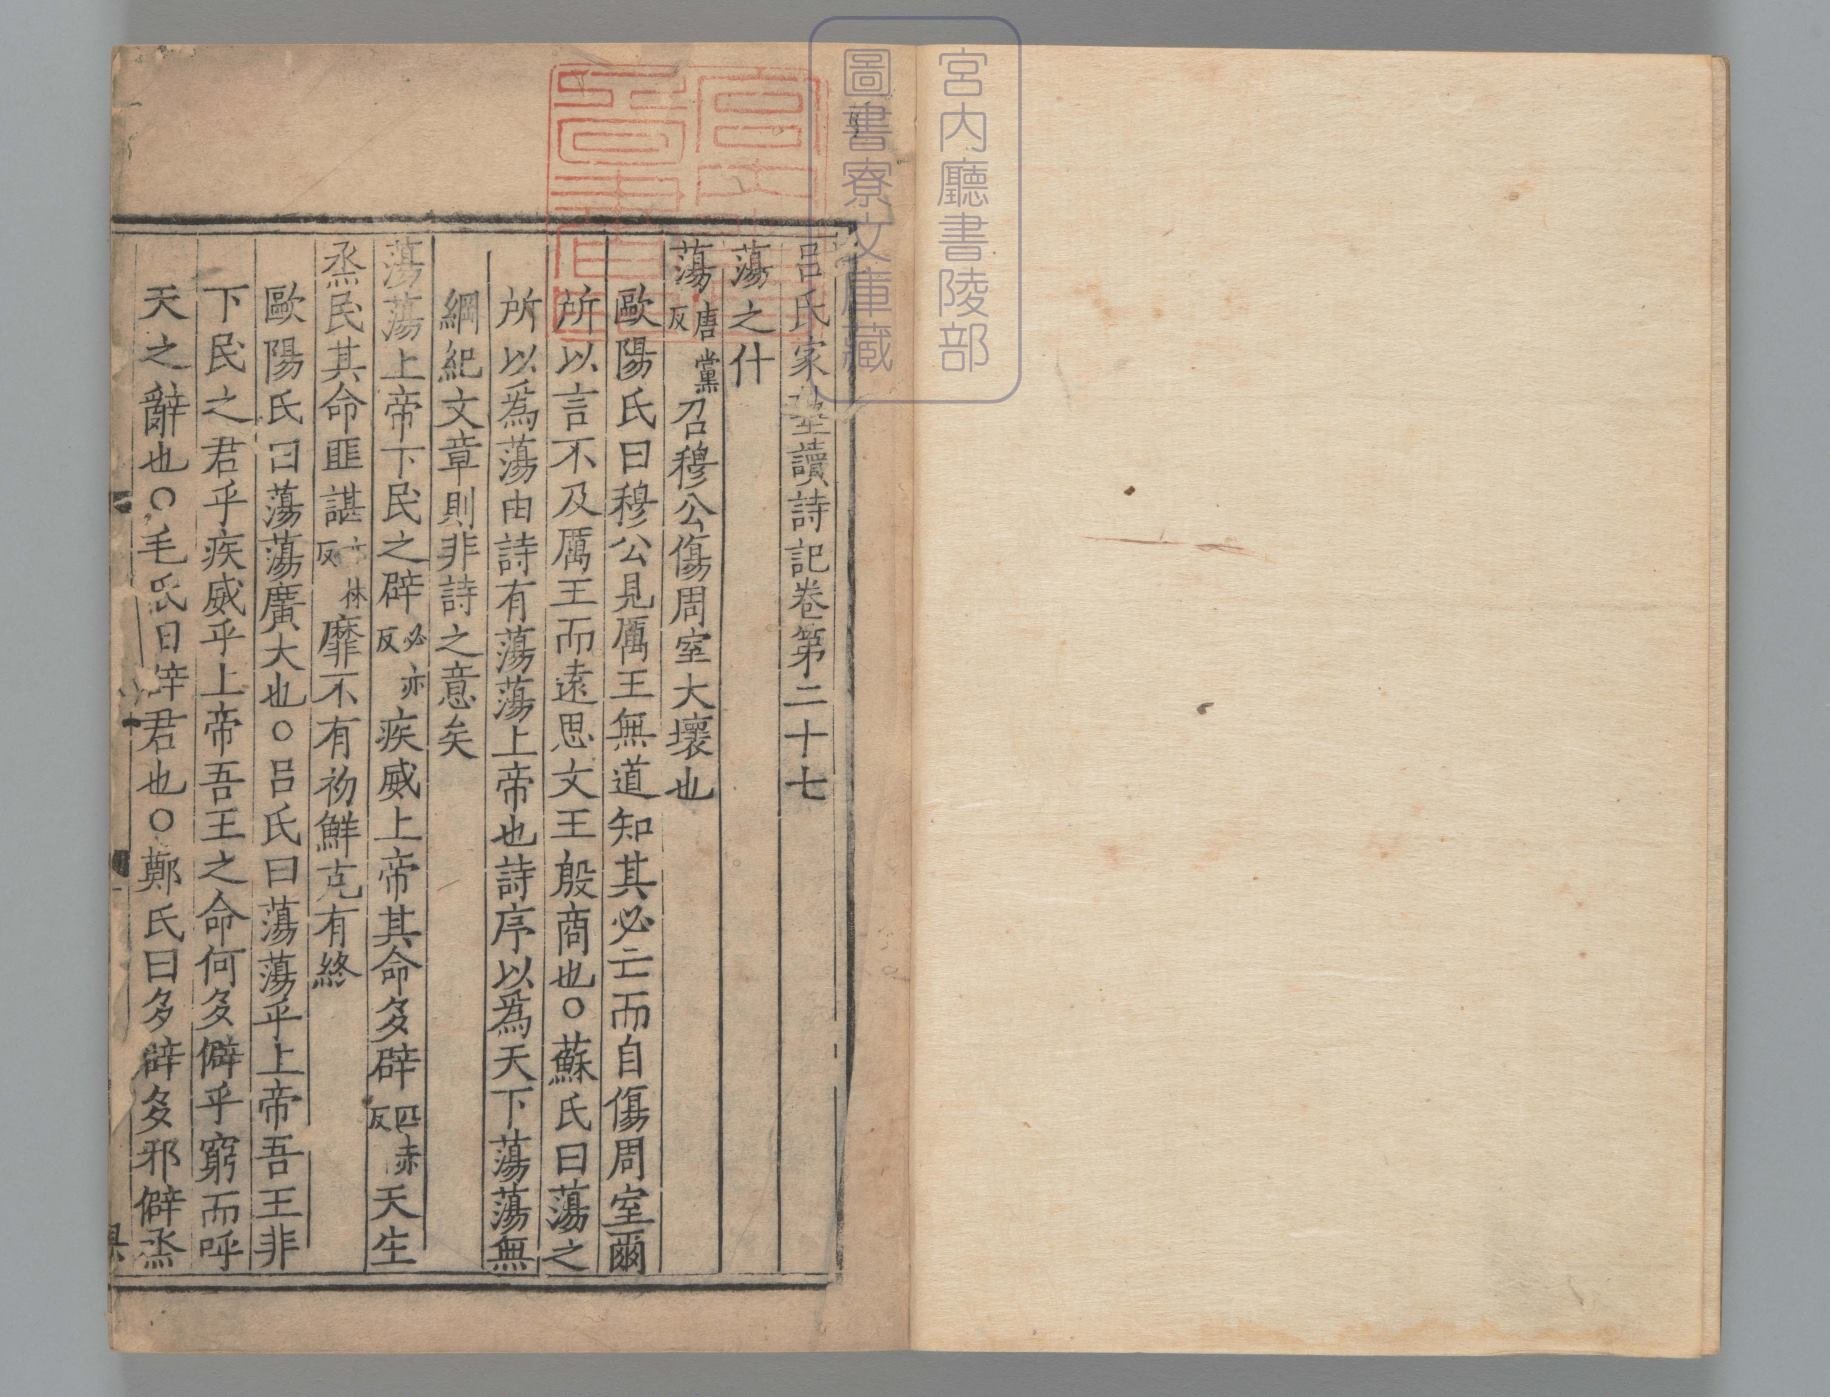 宮内廳書陵部
圖書寮文庫藏
呂氏家塾讀詩記卷第二十七
蕩之什
蕩唐黨反召穆公傷周室大壞也
歐陽氏曰穆公見厲王無道知其必亡而自傷周室爾
所以言不及厲王而遠思文王殷商也○蘇氏曰蕩之
所以為蕩由詩有蕩蕩上帝也詩序以為天下蕩蕩無
綱紀文章則非詩之意矣
蕩蕩上帝下民之辟必亦反疾威上帝其命多辟匹赤反天生
烝民其命匪諶林反靡不有初鮮克有終
歐陽氏曰蕩蕩廣大也○呂氏曰蕩蕩乎上帝吾王非
下民之君乎疾威乎上帝吾王之命何多僻乎窮而呼
天之辭也○毛氏曰辟君也○鄭氏曰多辟多邪僻烝